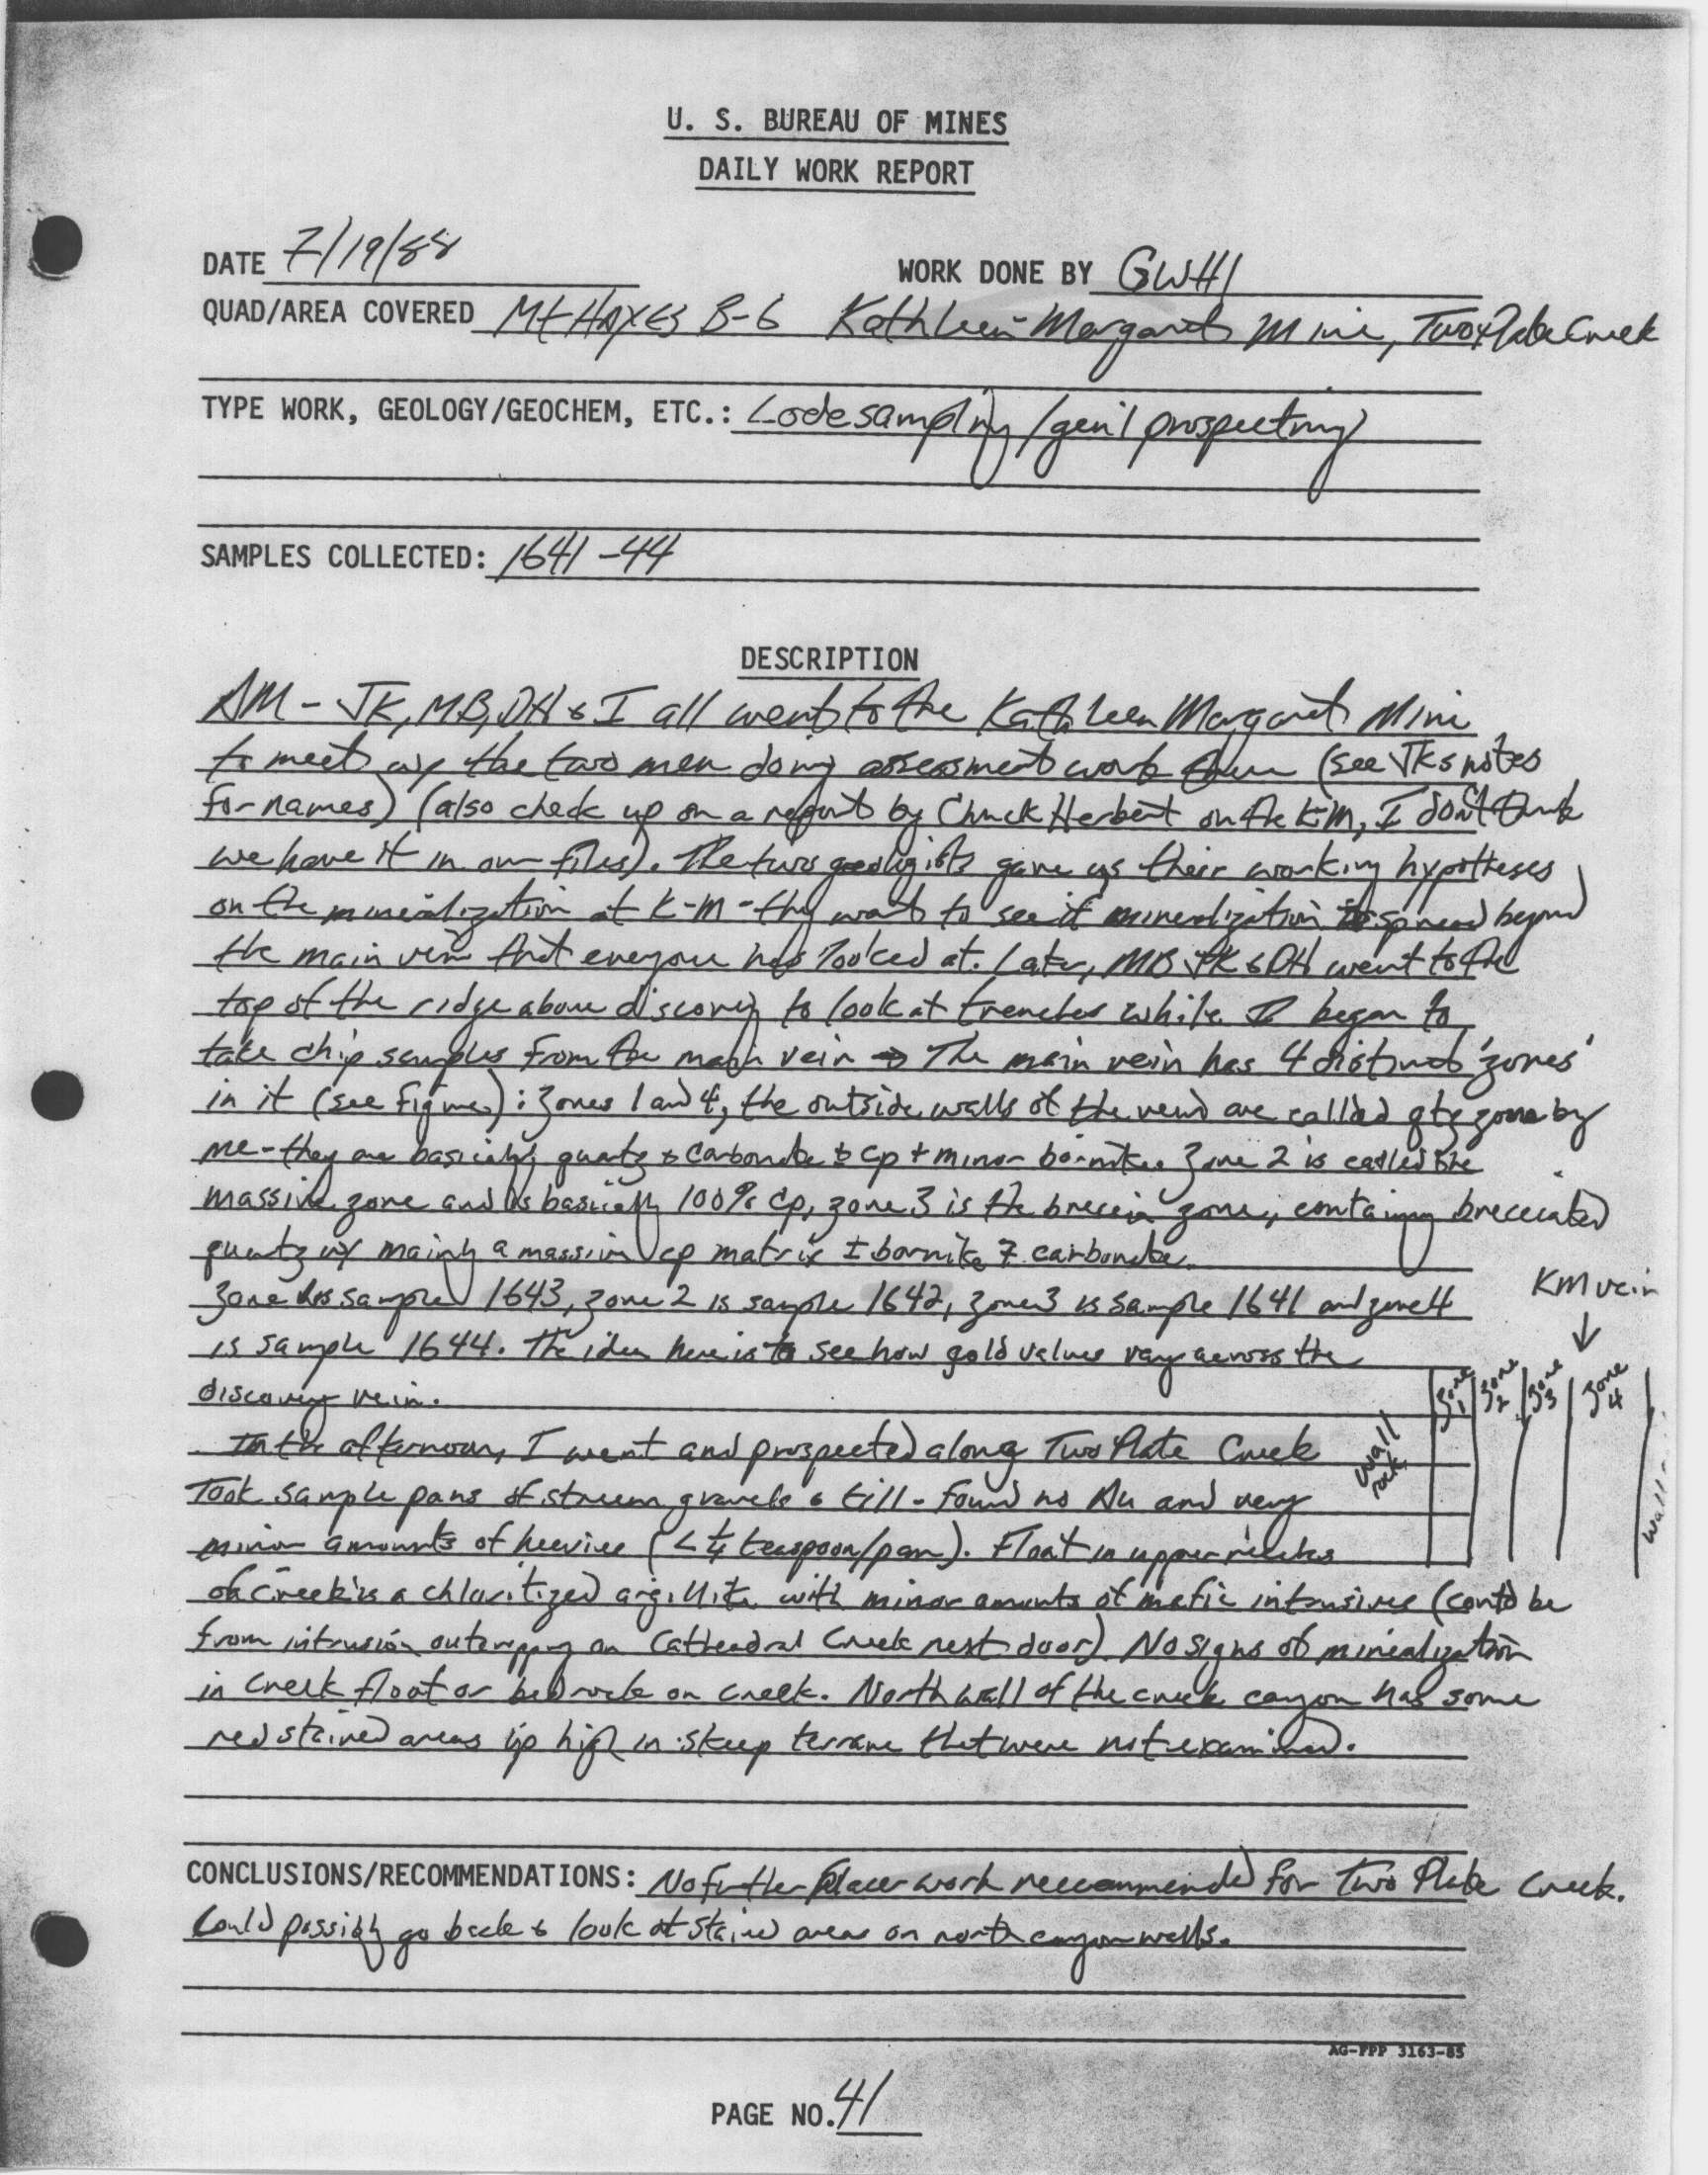 U. S. BUREAU OF MINES
DAILY WORK REPORT
DATE 7/19/88
WORK DONE BY GWHI
QUAD/AREA COVERED Mt Hayes B-6 Kathleen-Margaret Mine, Two Plate Creek
TYPE WORK, GEOLOGY/GEOCHEM, ETC.: Lode sampling/gen'l prospecting
SAMPLES COLLECTED: 1641-44
DESCRIPTION
AM - JK, MB, DH & I all went to the Kathleen Margaret Mine
to meet w/ the two men doing assessment work there (see JKs notes
for names) (also check up on a report by Chuck Herbert on the K-M, I don't think
we have it in our files). The two geologists gave us their working hypotheses
on the mineralization at K-M - they want to see if mineralization is spread beyond
the main vein that everyone has looked at. Later, MB JK & DH went to the
top of the ridge above discovery to look at trenches while I began to
take chip samples from the main vein → The main vein has 4 distinct 'zones'
in it (see figure): Zones 1 and 4, the outside walls of the vein are called qtz zone by
me - they are basically quartz & carbonate ± cp + minor bornite. Zone 2 is called the
massive zone and is basically 100% cp, zone 3 is the breccia zone, containing brecciated
quartz w/ mainly a massive cp matrix ± bornite ∓ carbonate.
Zone 1 is sample 1643, zone 2 is sample 1642, zone 3 is sample 1641 and zone 4
is sample 1644. The idea here is to see how gold values vary across the
discovery vein.
KM vein
↓
Zone 1 Zone 2 Zone 3 Zone 4
wall rock
wall
In the afternoon, I went and prospected along Two Plate Creek
Took sample pans of stream gravels & till - found no Au and very
minor amounts of heavies (< 1/4 teaspoon/pan). Float in upper reaches
of Creek is a chloritized argillite with minor amounts of mafic intrusives (could be
from intrusion outcropping on Cathedral Creek next door). No signs of mineralization
in creek float or bedrock on creek. North wall of the creek canyon has some
red stained areas up high in steep terrane that were not examined.
CONCLUSIONS/RECOMMENDATIONS: No further placer work reccommended for Two Plate Creek.
Could possibly go back & look at stained areas on north canyon walls.
AG-FPP 3163-85
PAGE NO. 41